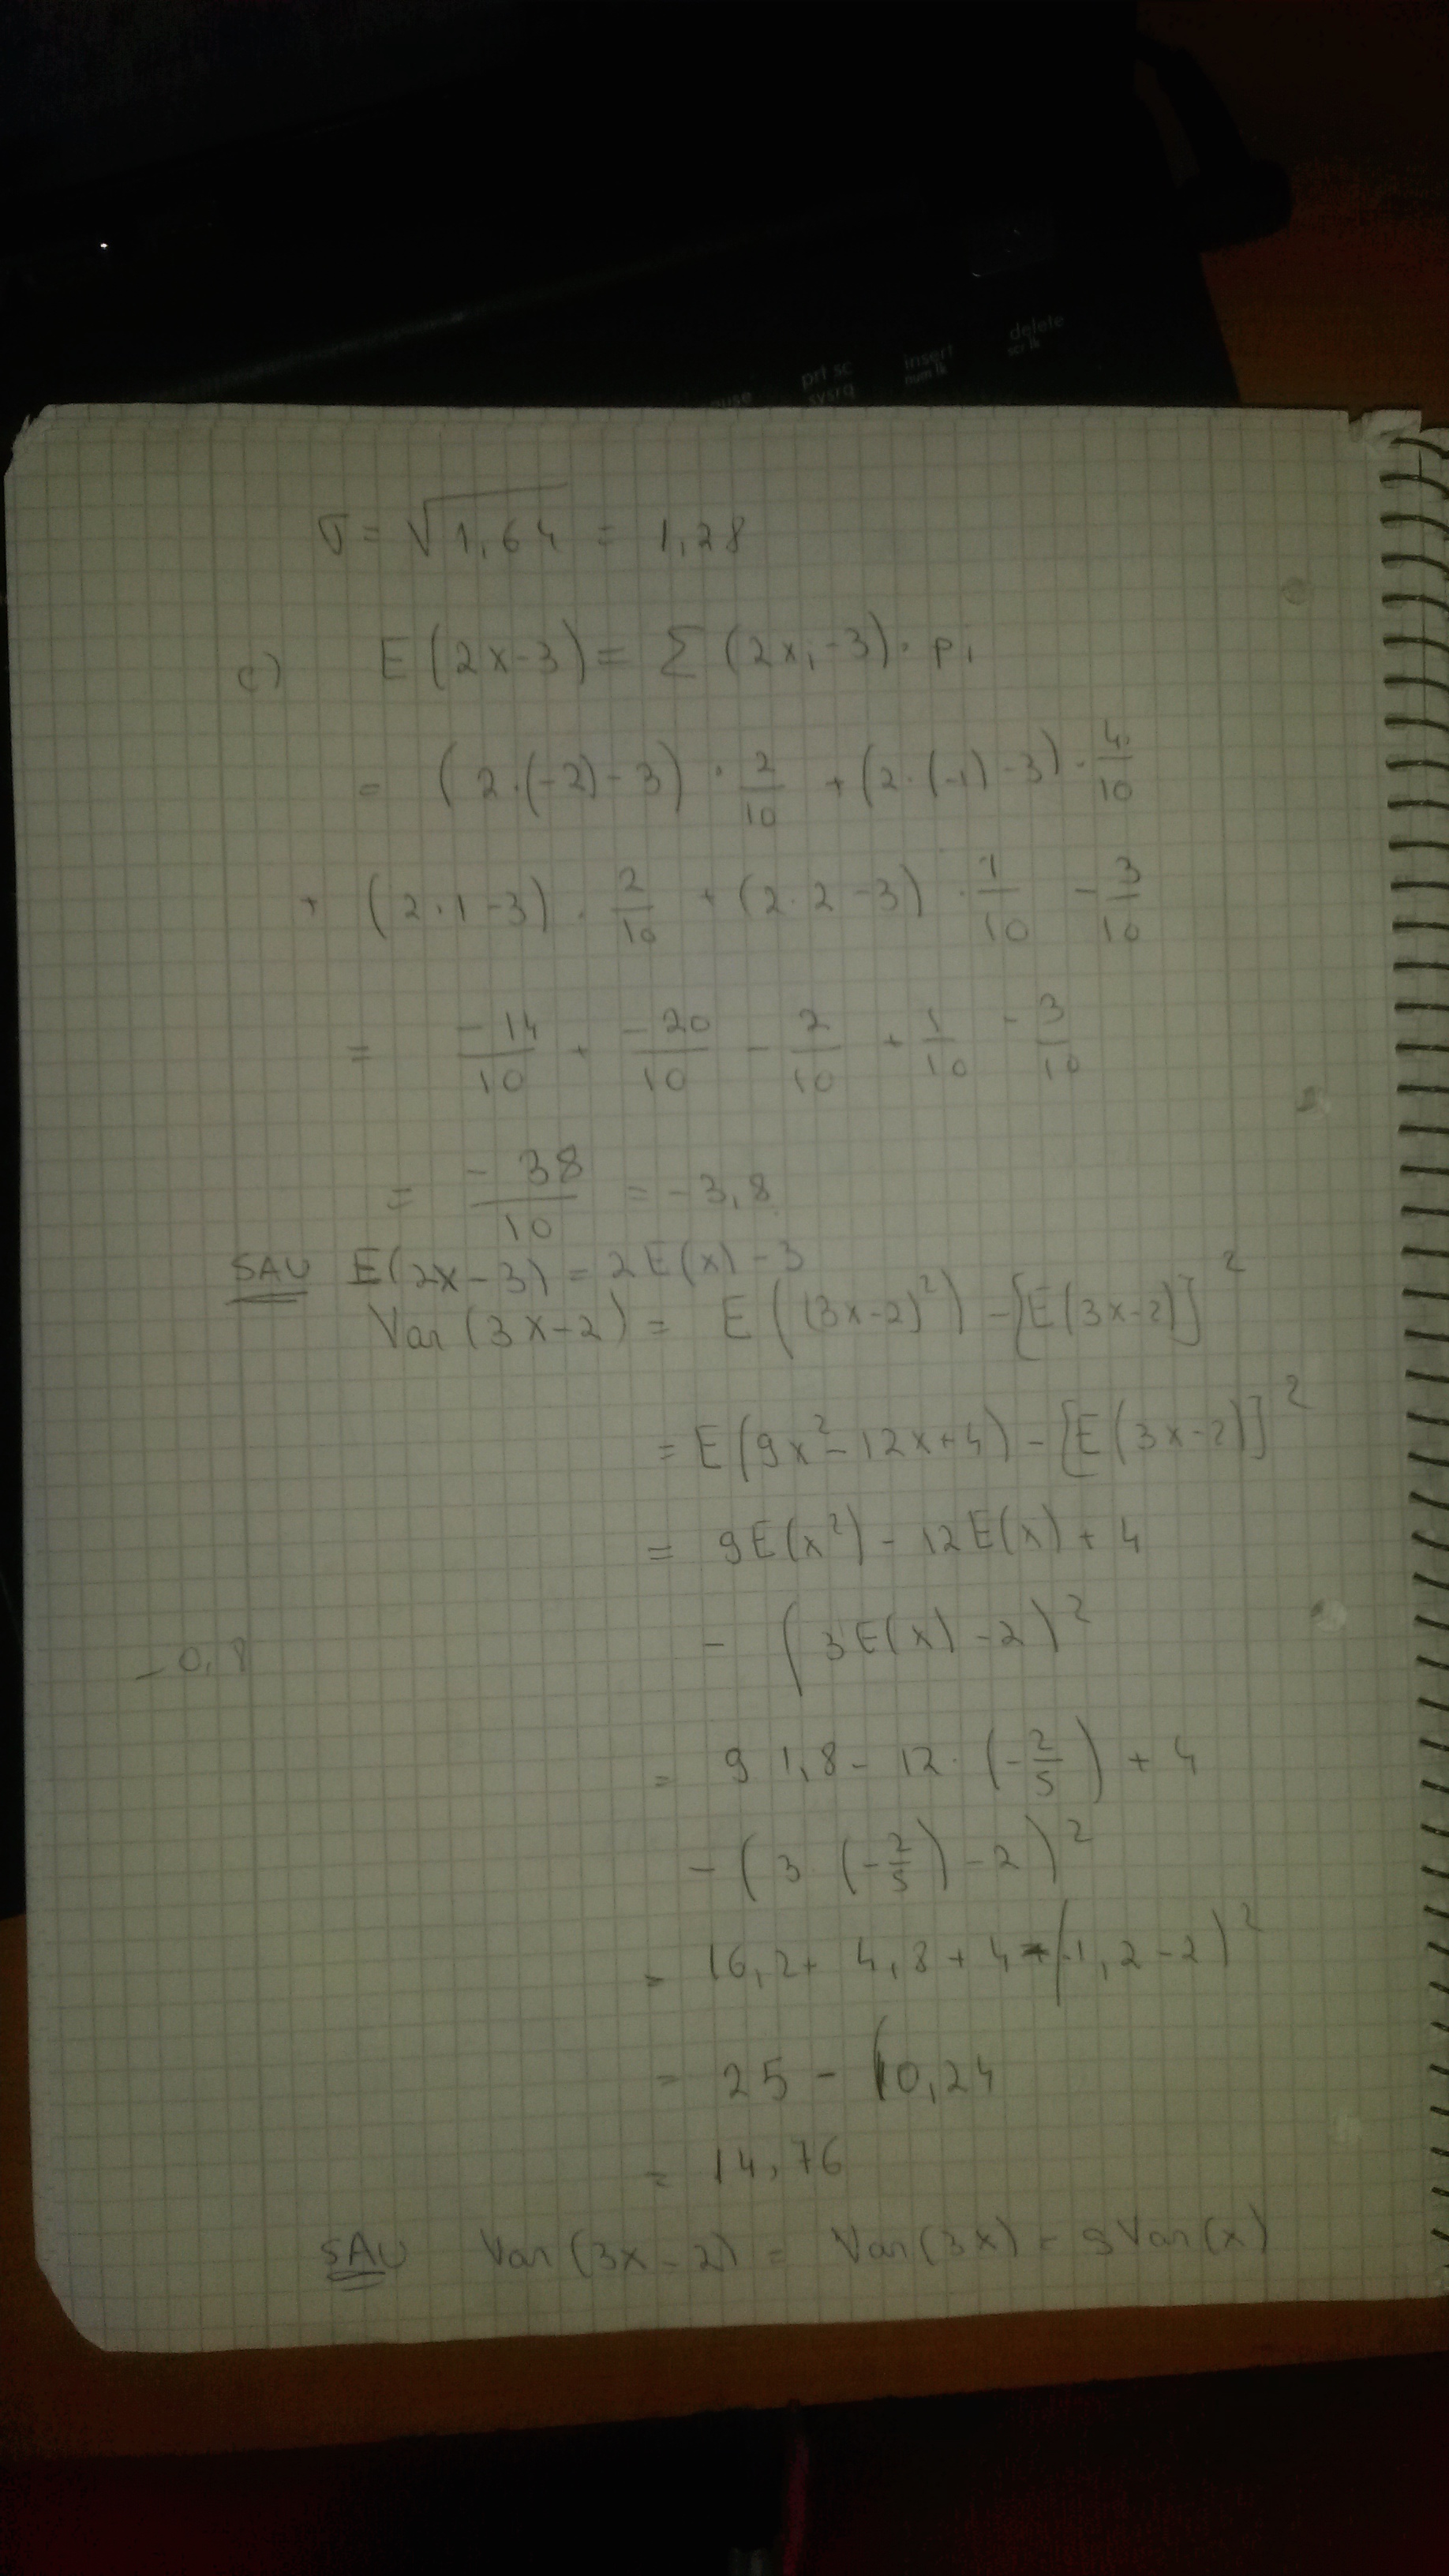 prt sc
sysrq
insert
num lk
delete
scr lk
σ = √1,64 = 1,28
c) E(2x-3) = Σ (2xi-3)· pi
= (2·(-2)-3) · 2/10 + (2·(-1)-3) · 4/10
+ (2·1-3) · 2/10 + (2·2-3) · 1/10 - 3/10
= -14/10 + -20/10 - 2/10 + 1/10 - 3/10
= -38/10 = -3,8
SAU E(2x-3) = 2E(x) - 3
Var(3x-2) = E((3x-2)²) - [E(3x-2)]²
= E(9x²-12x+4) - [E(3x-2)]²
= 9E(x²) - 12E(x) + 4
- (3E(x) - 2)²
-0,8
= 9 1,8 - 12· (-2/5) + 4
- (3 (-2/5) - 2)²
= 16,2+ 4,8 + 4 - (-1,2-2)²
= 25 - 10,24
= 14,76
SAU Var(3x-2) = Var(3x) = 9Var(x)